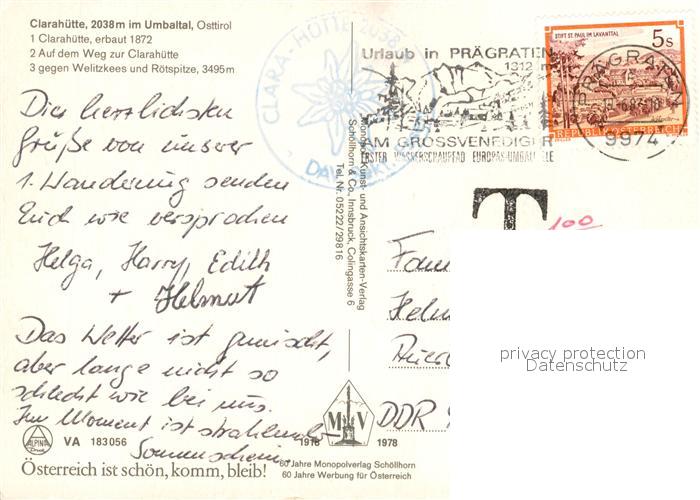 Clarahütte, 2038m im Umbaltal, Osttirol
1 Clarahütte, erbaut 1872
2 Auf dem Weg zur Clarahütte
3 gegen Welitzkees und Rötspitze, 3495m
Die herzlichsten
Grüße von unserer
1. Wanderung senden
Euch wie versprochen
Helga, Harry, Edith
+ Helmut
Das Wetter ist gemischt,
aber lange nicht so
schlecht wie bei uns.
Im Moment ist strahlender
Sonnenschein.
ALPINA
Druck
VA 183056
Österreich ist schön, komm, bleib!
1918 MV 1978
60 Jahre Monopolverlag Schöllhorn
60 Jahre Werbung für Österreich
CLARA-HÜTTE 2038
DAV
Monopol Kunst- und Ansichtskarten-Verlag
Schöllhorn & Co., Innsbruck, Colingasse 6
Tel. Nr. 05222/29816
Urlaub in PRÄGRATEN
1312 m
AM GROSSVENEDIGER
ERSTER WASSERSCHAUPFAD EUROPAS-UMBALFÄLLE
STIFT ST. PAUL IM LAVANTTAL
5s
REPUBLIK ÖSTERREICH
PRÄGRATEN
9974
T
100
Fam
Helm
DDR
privacy protection
Datenschutz